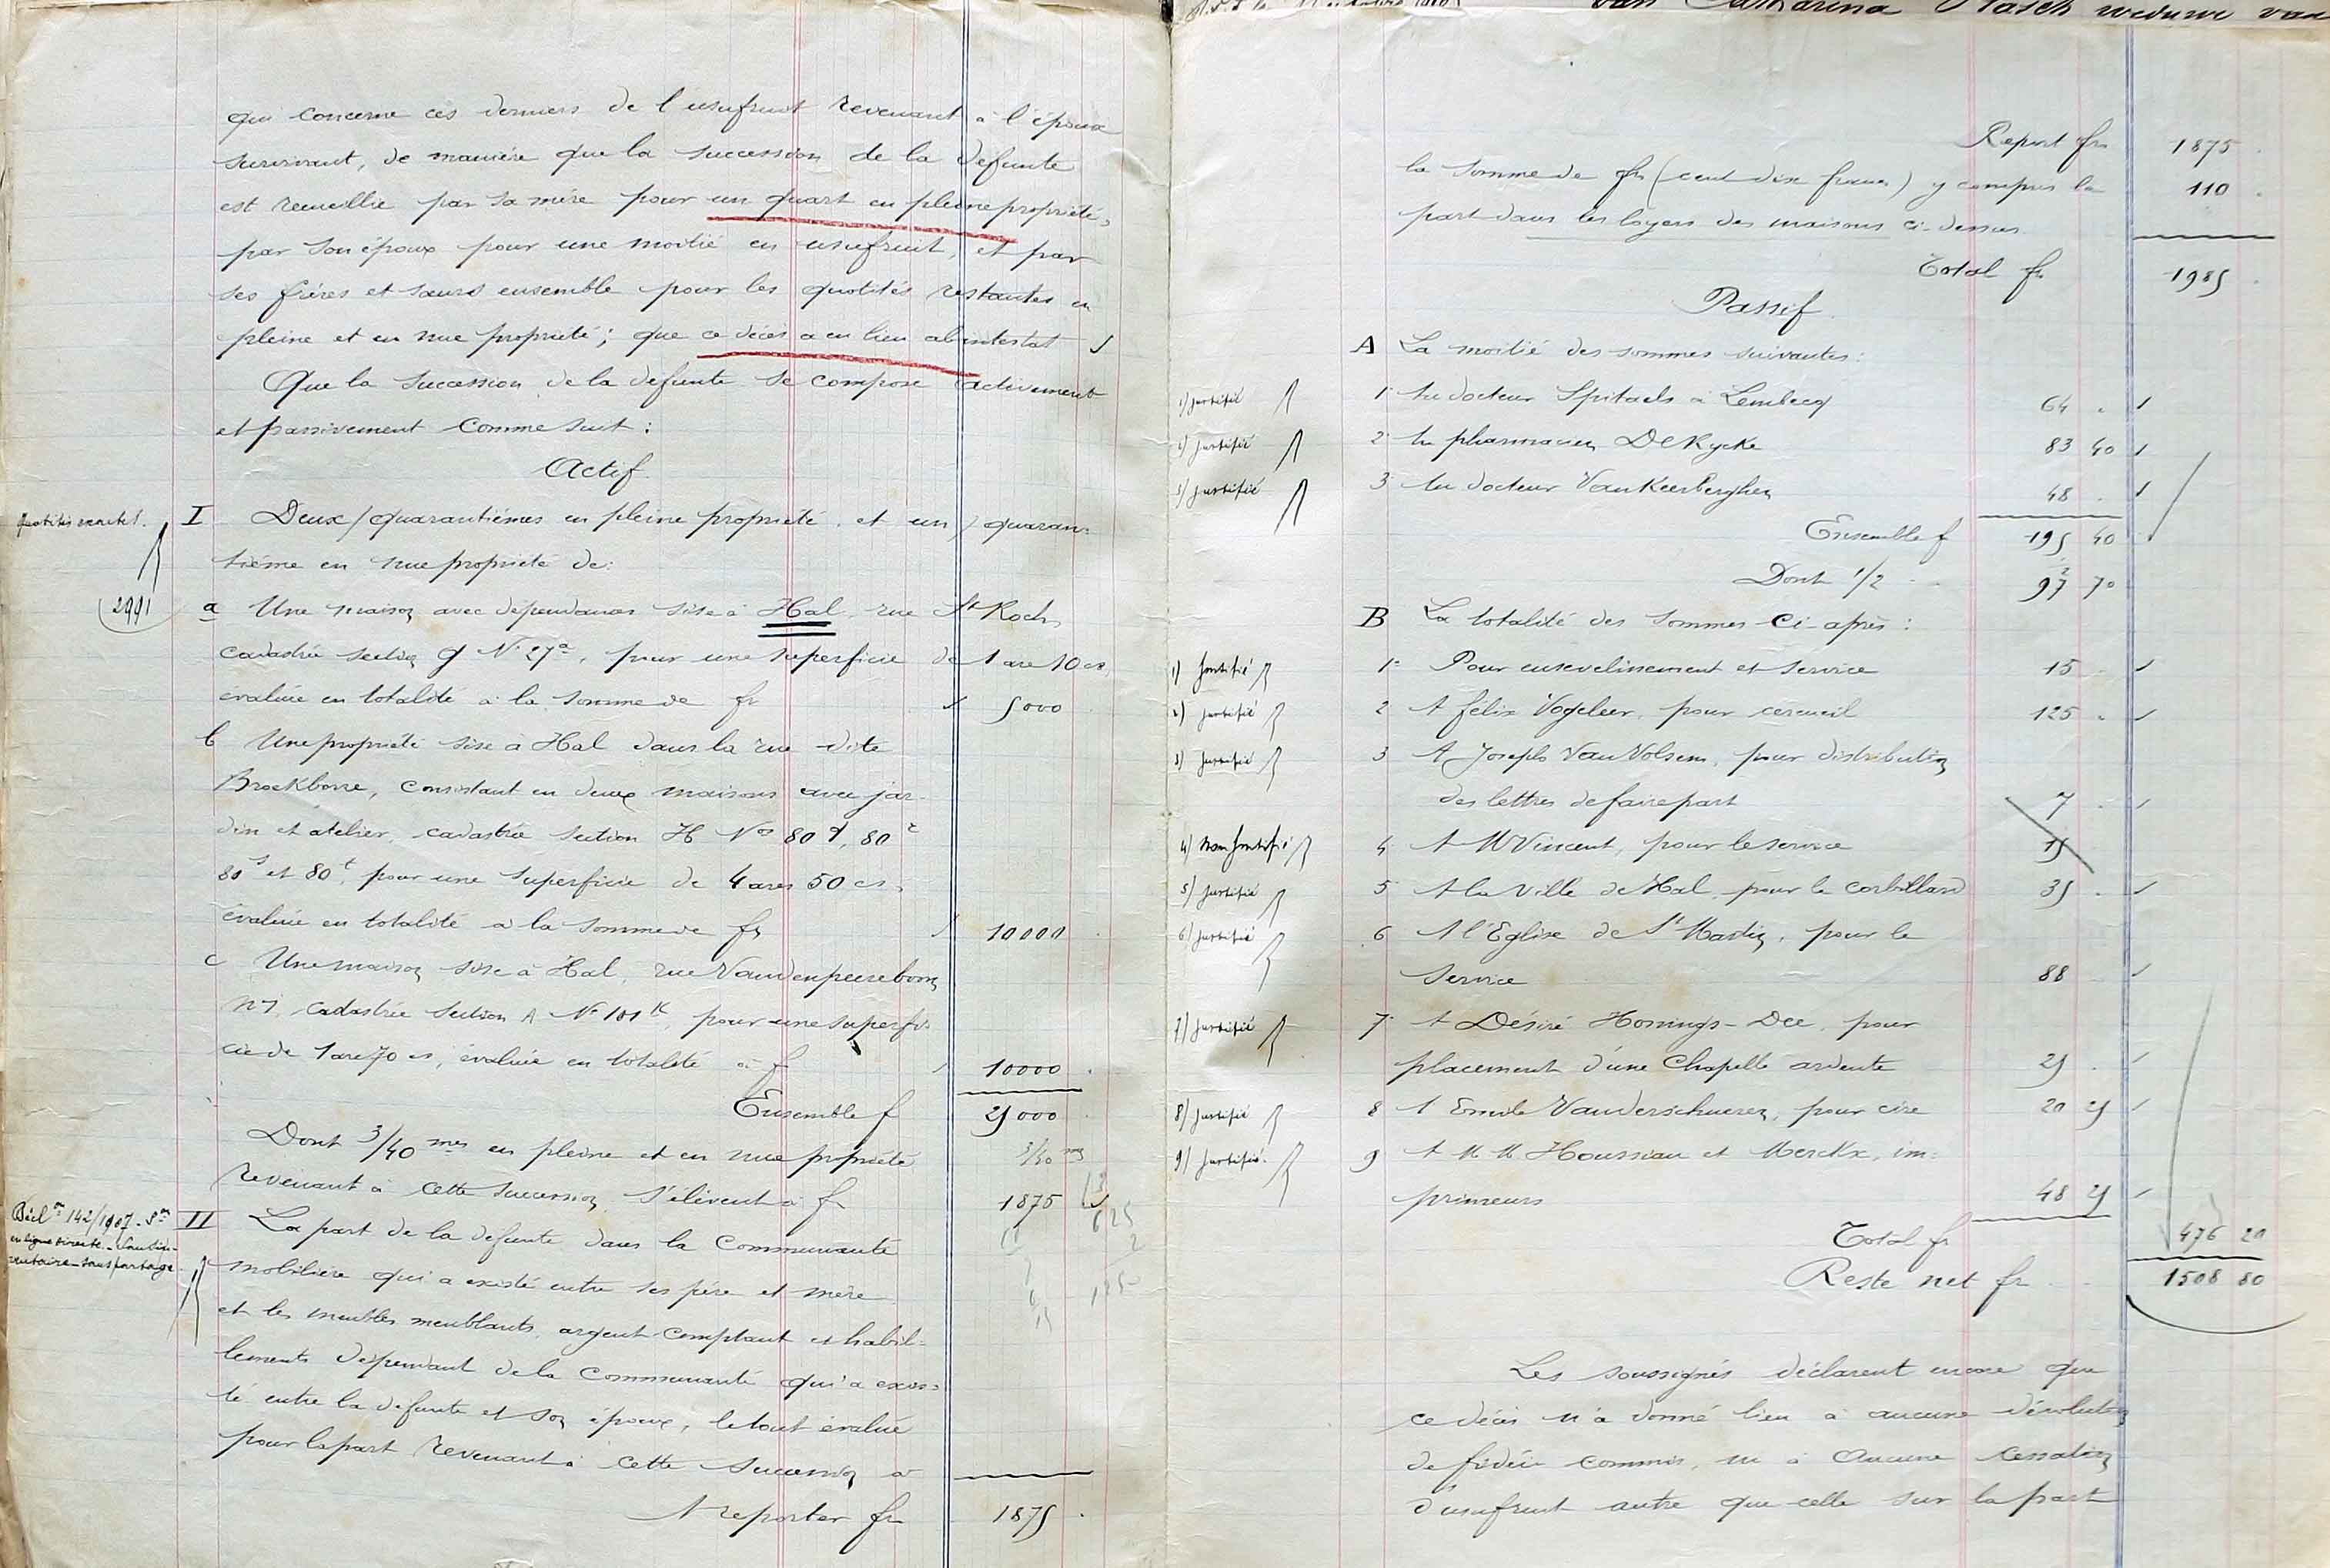 qui concerne ces derniers de l'usufruit revenant à l'époux
survivant, de manière que la succession de la défunte
est recueillie par sa mère pour un quart en pleine propriété,
par son époux pour une moitié en usufruit, et par
ses frères et sœurs ensemble pour les quotités restantes en
pleine et en nue propriété; que ce décès a eu lieu ab intestat
Que la succession de la défunte se compose activement
et passivement comme suit:
Actif
quotités exactes.
I Deux/quarantièmes en pleine propriété, et un/quaran=
tième en nue propriété de:
2991
a Une maison avec dépendances sise à Hal, rue St Roch,
cadastrée section G No 27a, pour une superficie de 1 are 10 ca,
évaluée en totalité à la somme de fr 5000
b Une propriété sise à Hal dans la rue dite
Broekborre, consistant en deux maisons avec jar-
din et atelier, cadastrée section H Nos 80 q, 80 r
80 s et 80 t, pour une superficie de 4 ares 50 cs,
évaluée en totalité à la somme de frs 10000
c Une maison sise à Hal, rue Vandenpeereboom
no 7, cadastrée section A No 101 k, pour une superfi-
cie de 1 are 70 cs, évaluée en totalité à f 10000
Ensemble f 25000
Dont 3/40 mes en pleine et en nue propriété 3/40 mes
revenant à cette succession s'élèvent à fr 1875
Décl on 142/1907 - Son
en ligne directe -
sans partage.
II La part de la défunte dans la communauté
mobilière qui a existé entre ses père et mère
et les meubles meublants, argent comptant et habil=
lements dépendant de la communauté qui a exis=
té entre la défunte et son époux, le tout évalué
pour la part revenant à cette succession à
625
2
1250
A reporter fr 1875
van Catharina weduwe van
Report frs 1875
la somme de frs (cent dix francs) y compris la 110
part dans les loyers des maisons ci-dessus
Total fr 1985
Passif
A La moitié des sommes suivantes:
1) justifié 1° Au docteur Spitaels à Lembecq 64
2) justifié 2° Au pharmacien De Rycke 83 40
3) justifié 3° Au docteur Van Keerberghen 48
Ensemble f 195 40
Dont 1/2 97 70
B La totalité des sommes ci-après:
1) justifié 1° Pour ensevelissement et service 15
2) justifié 2 A Félix Vogeleer, pour cercueil 125
3) justifié 3 A Joseph Van Volsem, pour distribution
des lettres de faire part 7
4) Non justifié 4 A M Vincent, pour le service 15
5) justifié 5 A la Ville de Hal, pour le corbillard 35
6) justifié 6 A l'Eglise de St Martin, pour le
service 88
7) justifié 7 A Désiré Honnings-Dee, pour
placement d'une chapelle ardente 25
8) justifié 8 A Emile Vanderschueren, pour cire 20 25
9) justifié. 9 A M M Houssiau et Merckx, im=
primeurs 48 25
Total fr 476 20
Reste net fr 1508 80
Les soussignés déclarent encore que
ce décès n'a donné lieu à aucune dévolution
de fidéi commis, ni à aucune cessation
d'usufruit autre que celle sur la part